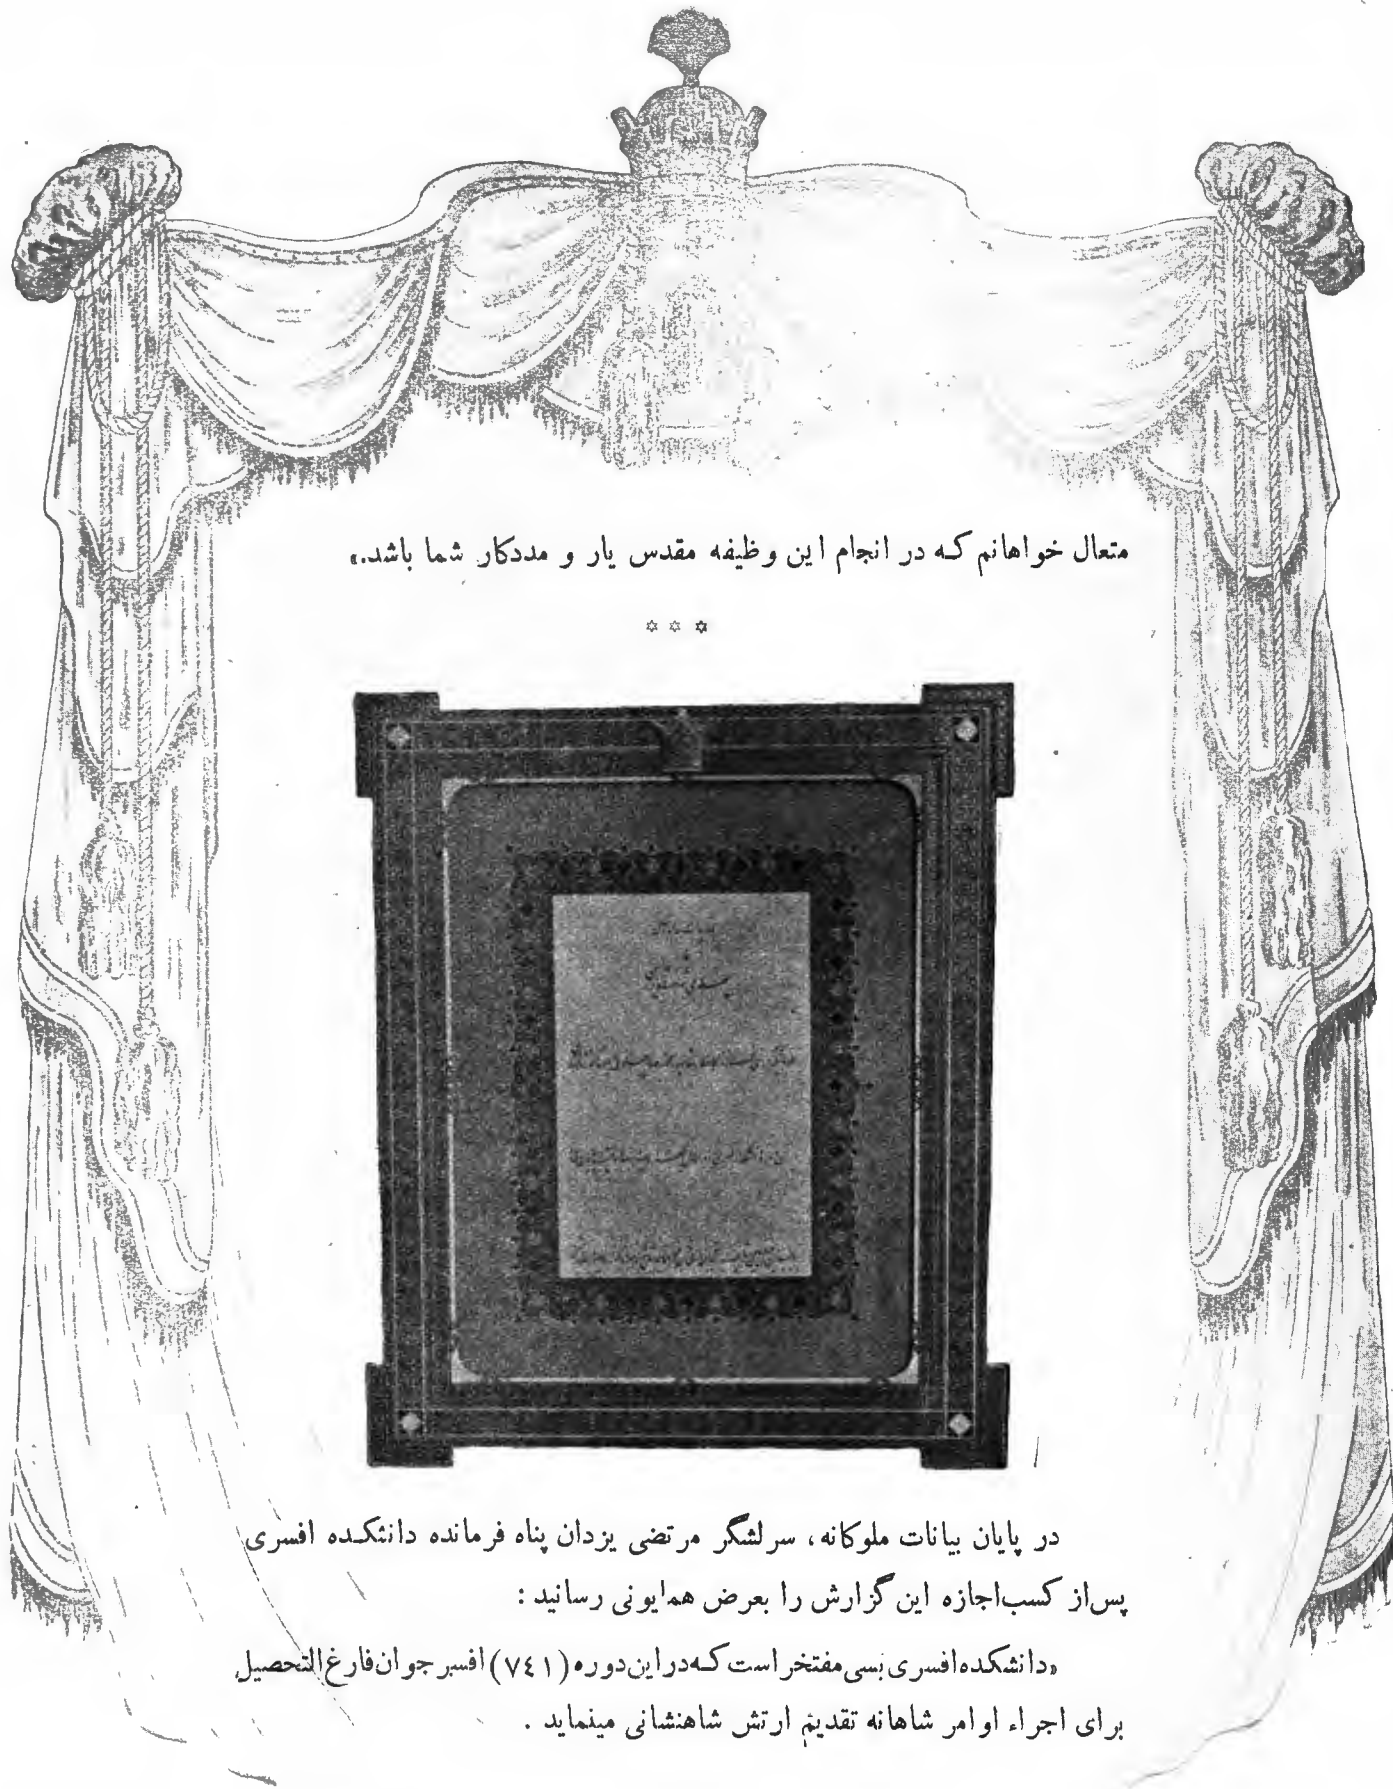 متعال خواهانم که در انجام این وظیفه مقدس یار و مددکار شما باشد.»
✡ ✡ ✡
در پایان بیانات ملوکانه، سرلشگر مرتضی یزدان پناه فرمانده دانشکده افسری
پس‌از کسب‌اجازه این گزارش را بعرض همایونی رسانید :
«دانشکده افسری بسی مفتخر است که در این دوره (٧٤١) افسر جوان فارغ‌التحصیل
برای اجراء اوامر شاهانه تقدیم ارتش شاهنشانی مینماید .